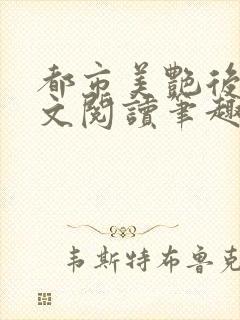 都市美艷後
文閱讀筆趣
韦斯特布鲁克